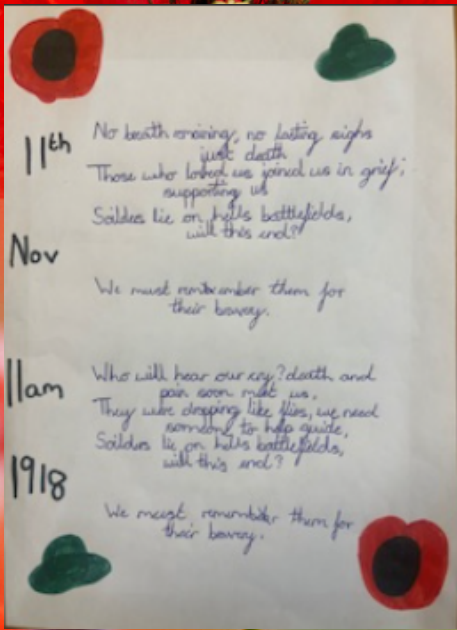 11th
No breath remaining, no lasting sighs
just death
Those who loved us joined us in grief,
supporting us
Soilders lie on hells battlefields,
will this end?
Nov
We must remember them for
their bravery.
11am
Who will hear our cry? death and
pain soon meet us,
They were dropping like flies, we need
someone to help guide,
Soilders lie on hells battlefields,
will this end?
1918
We must remember them for
their bravery.